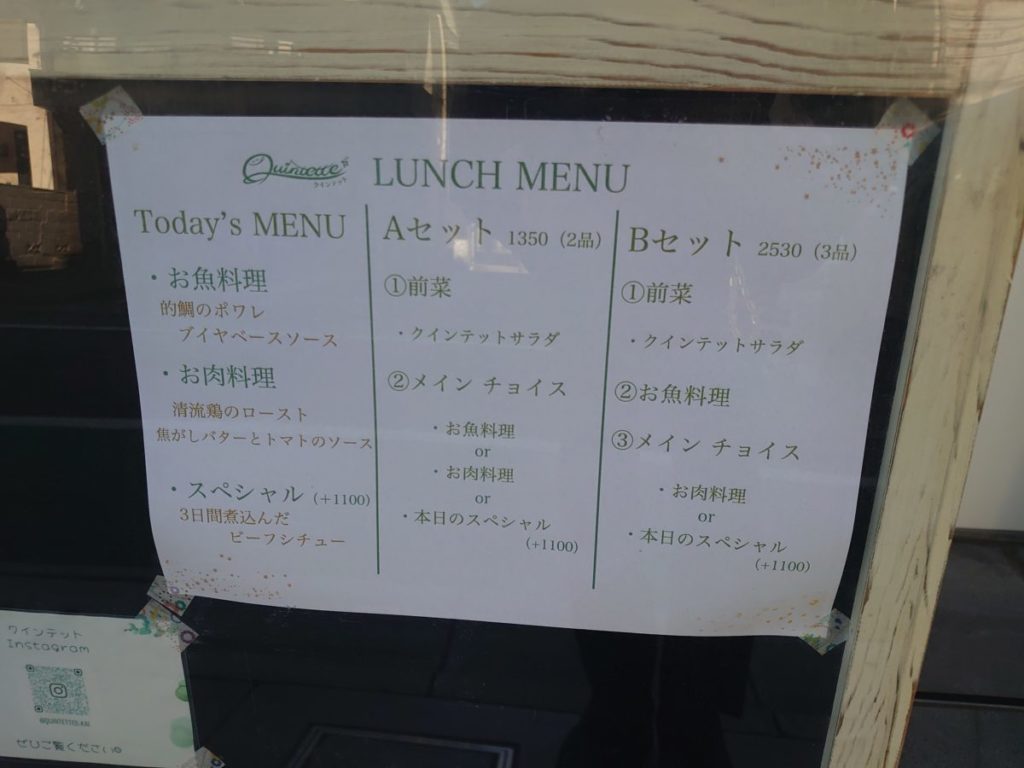 Quintette
クインテット
LUNCH MENU
Today's MENU
・お魚料理
的鯛のポワレ
ブイヤベースソース
・お肉料理
清流鶏のロースト
焦がしバターとトマトのソース
・スペシャル (+1100)
3日間煮込んだ
ビーフシチュー
Aセット 1350 (2品)
①前菜
・クインテットサラダ
②メイン チョイス
・お魚料理
or
・お肉料理
or
・本日のスペシャル
(+1100)
Bセット 2530 (3品)
①前菜
・クインテットサラダ
②お魚料理
③メイン チョイス
・お肉料理
or
・本日のスペシャル
(+1100)
クインテット
Instagram
ぜひご覧ください